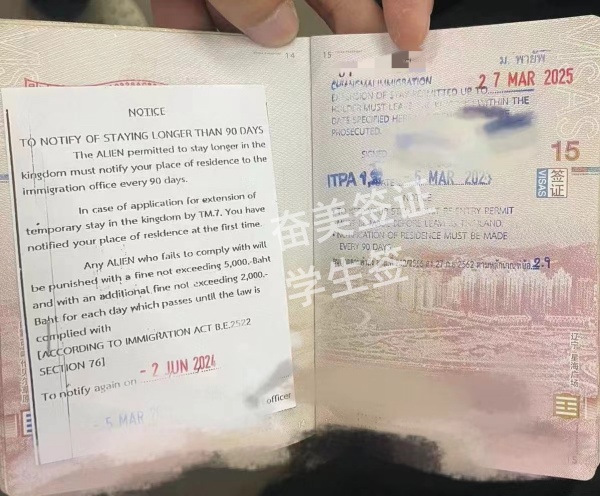 14
NOTICE
TO NOTIFY OF STAYING LONGER THAN 90 DAYS
The ALIEN permitted to stay longer in the
kingdom must notify your place of residence to the
immigration office every 90 days.
In case of application for extension of
temporary stay in the kingdom by TM.7. You have
notified your place of residence at the first time.
Any ALIEN who fails to comply with will
be punished with a fine not exceeding 5,000.-Baht
and with an additional fine not exceeding 2,000.-
Baht for each day which passes until the law is
complied with
[ACCORDING TO IMMIGRATION ACT B.E.2522
SECTION 76]
To notify again on - 2 JUN 2024
- 5 MAR
officer
15
ม. พายัพ
CHIANGMAI IMMIGRATION
27 MAR 2025
OF STAY PERMITTED UP TO
HOLDER MUST LEAVE THE WITHIN THE
DATE SPECIFIED
PROSECUTED.
SIGNED
15
VISAS
签证
MAR
ENTRY PERMIT
BEFORE
NOTIFICATION OF RESIDENCE MUST BE MADE
EVERY 90 DAYS
2.9
奋美签证
学生签
VISAS
辽宁·星海广场
15